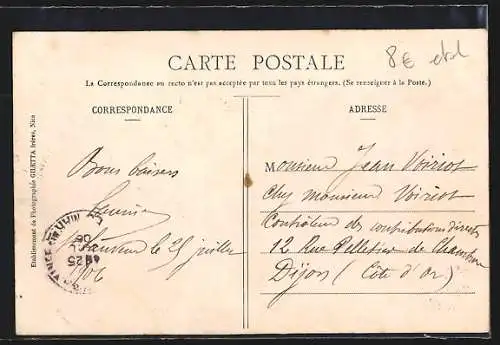 CARTE POSTALE
8€
La Correspondance au recto n'est pas acceptée par tous les pays étrangers. (Se renseigner à la Poste.)
CORRESPONDANCE
ADRESSE
Etablissement de Photographie GILETTA frères, Nice
Bons baisers
le 25 juillet
1906
Monsieur Jean Voiriot
Chez Monsieur Voiriot
Contrôleur des contributions directes
12 Rue Pelletier de Chambure
Dijon (Côte d'Or)
25